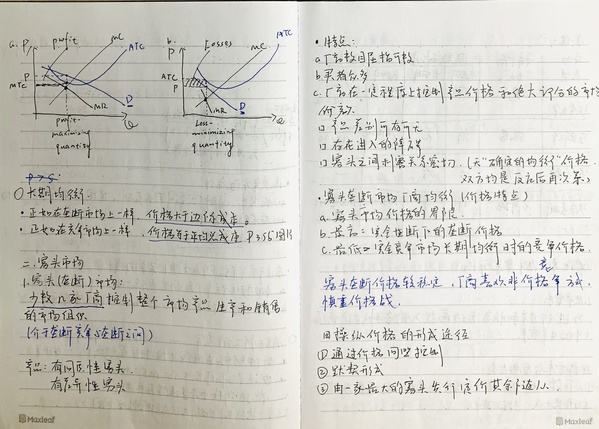 a. P
profit
MC
ATC
P
ATC
MR
D
Q
profit-
maximizing
quantity
b. P
Losses
MC
ATC
ATC
P
MR
D
Q
Loss-
minimizing
quantity
长期均衡
• 正如在垄断市场上一样，价格大于边际成本。
• 正如在竞争市场上一样，价格等于平均总成本 P356图
二. 寡头市场
1. 寡头(垄断)市场:
少数几家厂商控制整个市场产品生产和销售
的市场组织
(介于垄断竞争与垄断之间)
产品: 有同质性寡头
有差异性寡头
• 特点:
a. 厂商数目屈指可数
b. 买者众多
c. 厂商在一定程度上控制产品价格和绝大部分的市场
份额
产品差别可有可无
存在进入的障碍
寡头之间利害关系密切. (无"确定的均衡"价格
双方均是反应后再次
• 寡头垄断市场厂商均衡 (价格特点)
a. 寡头市场价格的界限
b. 最高: 完全垄断下的垄断价格
c. 最低: 完全竞争市场长期均衡时的竞争价格
寡头垄断价格较稳定，厂商喜欢非价格竞争方式,
慎重价格战.
操纵价格的形式途径
① 通过价格同盟控制
② 默契形式
③ 由一家最大的寡头先行定价其余
Maxleaf
Maxleaf